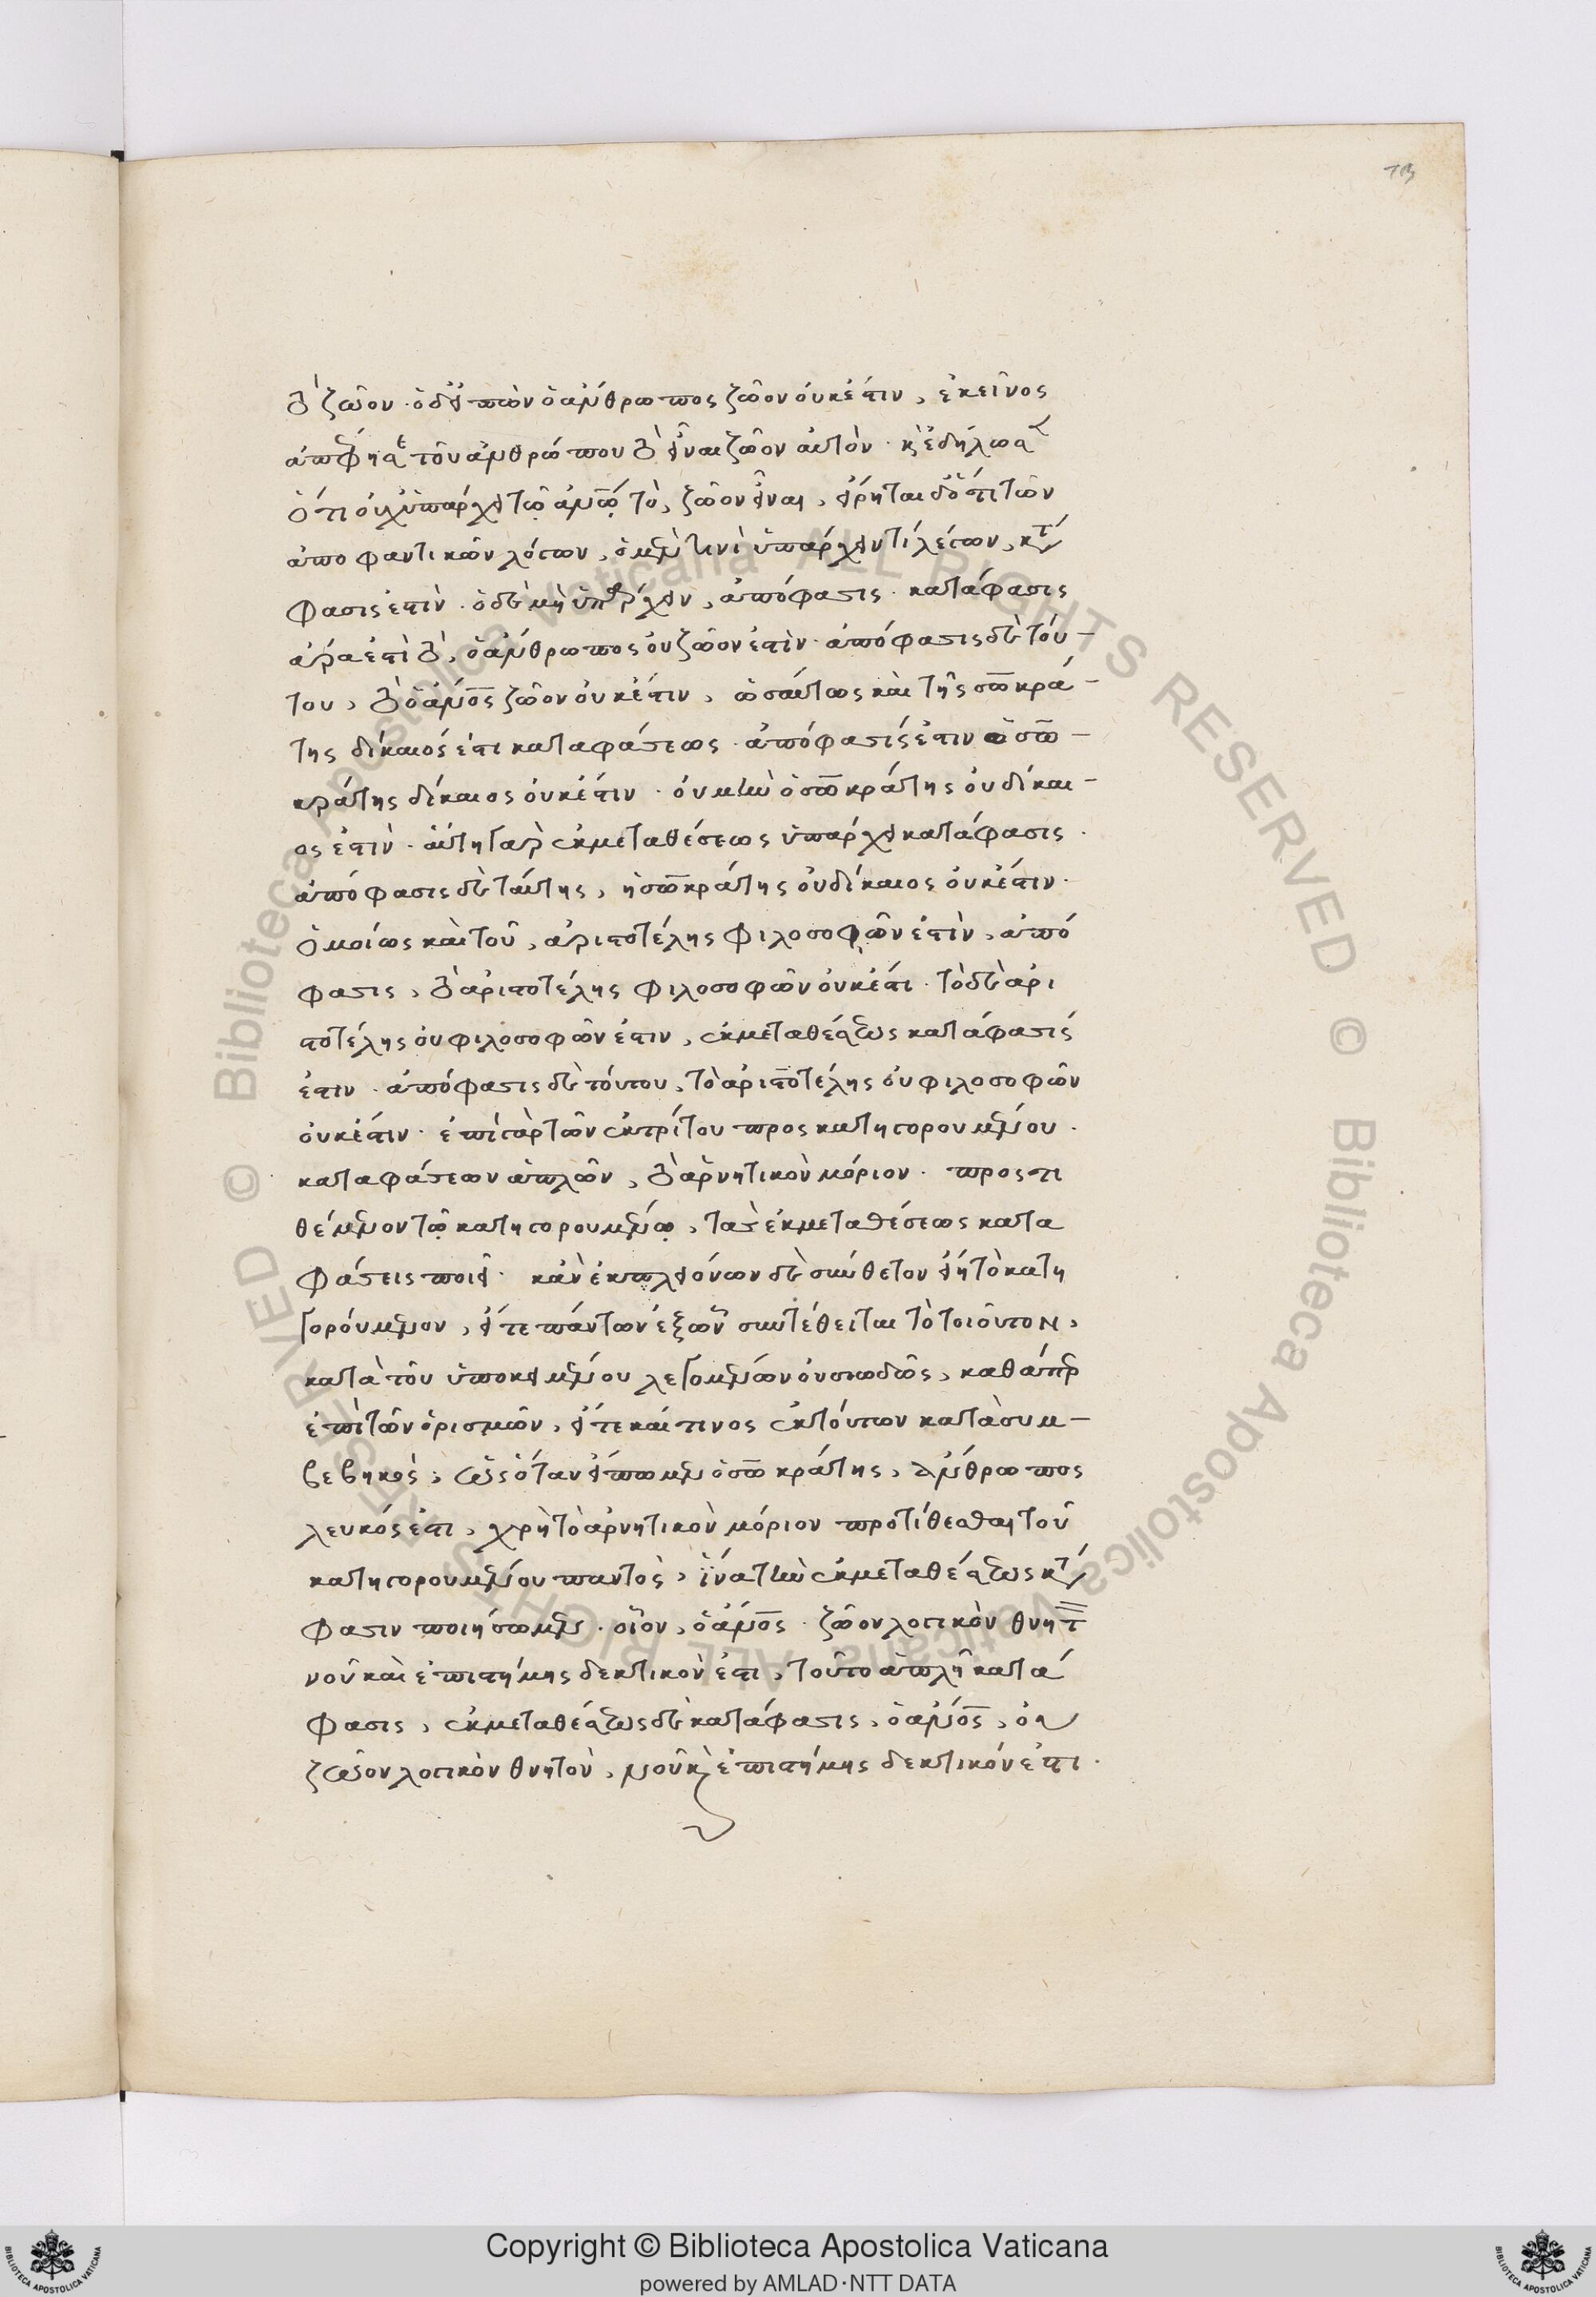 τὸ ζῶον. ὁ δ' εἰπὼν ὁ ἄνθρωπος ζῶον οὐκ ἔστιν, ἐκεῖνος
ἀπέφησε τοῦ ἀνθρώπου τὸ εἶναι ζῶον αὐτὸν. κ(αὶ) ἐδήλωσεν
ὅτι οὐχ ὑπάρχει τῷ ἀνω τὸ, ζῶον εἶναι, εἴρηται δ' ὅτι τῶν
ἀποφαντικῶν λόγων, ὁ μὲν τινὶ ὑπάρχειν τί λέγων, κατά
φασις ἐστὶν. ὁ δὲ μὴ ὑπάρχειν, ἀπόφασις. κατάφασις
ἄρα ἐστὶ τὸ, ὁ ἄνθρωπος οὐ ζῶον ἐστὶν. ἀπόφασις δὲ τού-
του, τὸ ὁ ἄνος ζῶον οὐκ ἔστιν, ὡσαύτως καὶ τῆς σωκρά-
της δίκαιός ἐστι καταφάσεως. ἀπόφασίς ἐστιν ὁ σω-
κράτης δίκαιος οὐκ ἔστιν. οὐ μὴν ὁ σωκράτης οὐ δίκαι-
ος ἐστὶν. αὕτη γὰρ ἐκ μεταθέσεως ὑπάρχει κατάφασις.
ἀπόφασις δὲ ταύτης, ἡ σωκράτης οὐ δίκαιος οὐκ ἔστιν.
ὁμοίως καὶ τοῦ, ἀριστοτέλης φιλοσοφῶν ἐστὶν, ἀπό
φασις, τὸ ἀριστοτέλης φιλοσοφῶν οὐκ ἔστι. τὸ δὲ ἀρι
στοτέλης οὐ φιλοσοφῶν ἔστιν, ἐκ μεταθέσεως κατάφασίς
ἐστιν. ἀπόφασις δὲ τούτου, τὸ ἀριστοτέλης οὐ φιλοσοφῶν
οὐκ ἔστιν. ἐπὶ γὰρ τῶν ἐκ τρίτου προσκατηγορουμένου.
καταφάσεων ἁπλῶν, τὸ ἀρνητικὸν μόριον. προστι
θέμενον τῷ κατηγορουμένῳ, τὰς ἐκ μεταθέσεως κατα
φάσεις ποιεῖ. κἂν ἐκ πλειόνων δὲ σύνθετον εἴη τὸ κατη
γορούμενον, εἴτε πάντων ἐξ ὧν συντέθειται τὸ τοιοῦτον,
κατὰ τοῦ ὑποκειμένου λεγομένων οὐσιωδῶς, καθάπερ
ἐπὶ τῶν ὁρισμῶν, εἴτε καί τινος ἐκ τούτων κατὰ συμ-
βεβηκὸς, ὡς ὅταν εἴπωμεν ὁ σωκράτης, ἄνθρωπος
λευκός ἐστι, χρὴ τὸ ἀρνητικὸν μόριον προτίθεσθαι τοῦ
κατηγορουμένου παντὸς, ἵνα τὴν ἐκ μεταθέσεως κατά
φασιν ποιήσωμεν. οἷον, ὁ ἄνος. ζῶον λογικὸν θνητὸν
νοῦ καὶ ἐπιστήμης δεκτικὸν ἐστι, τοῦτο ἁπλῆ κατά
φασις, ἐκ μεταθέσεως δὲ κατάφασις, ὁ ἄνος, οὐ
ζῶον λογικὸν θνητὸν, νοῦ κ(αὶ) ἐπιστήμης δεκτικόν ἐστι.
Copyright © Biblioteca Apostolica Vaticana
powered by AMLAD·NTT DATA